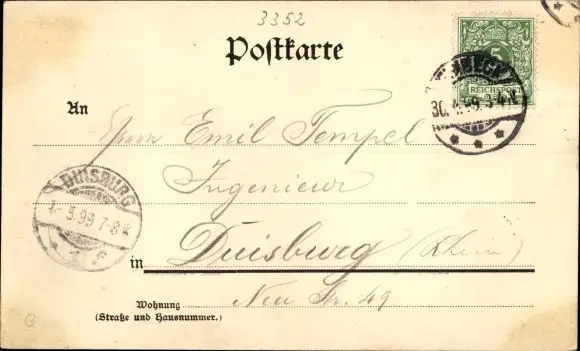 3352
Postkarte
5
REICHSPOST
30. 4. 99. 3-4 N.
An
Herrn Emil Tempel
Ingenieur
DUISBURG
1- 5 99 7-8 V.
in Duisburg (Rhein)
Neu Str. 49
Wohnung
(Straße und Hausnummer.)